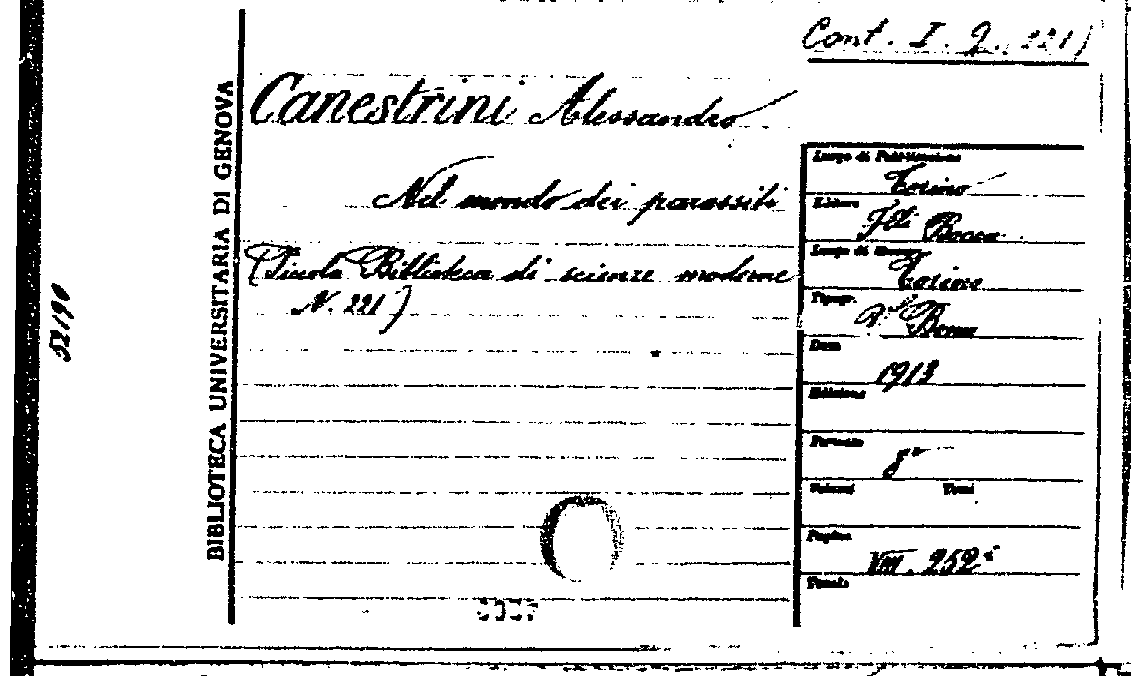 Cont. I. 9. 221)
Canestrini Alessandro
Nel mondo dei parassiti
(Piccola Biblioteca di scienze moderne
N. 221)
BIBLIOTECA UNIVERSITARIA DI GENOVA
52190
Luogo di Pubblicazione
Torino
Editore
F.lli Bocca
Luogo di Stampa
Torino
Tipogr.
Bocca
Data
1913
Edizione
Formato
8°
Volumi Tomi
Pagine
VIII. 252
Tavole